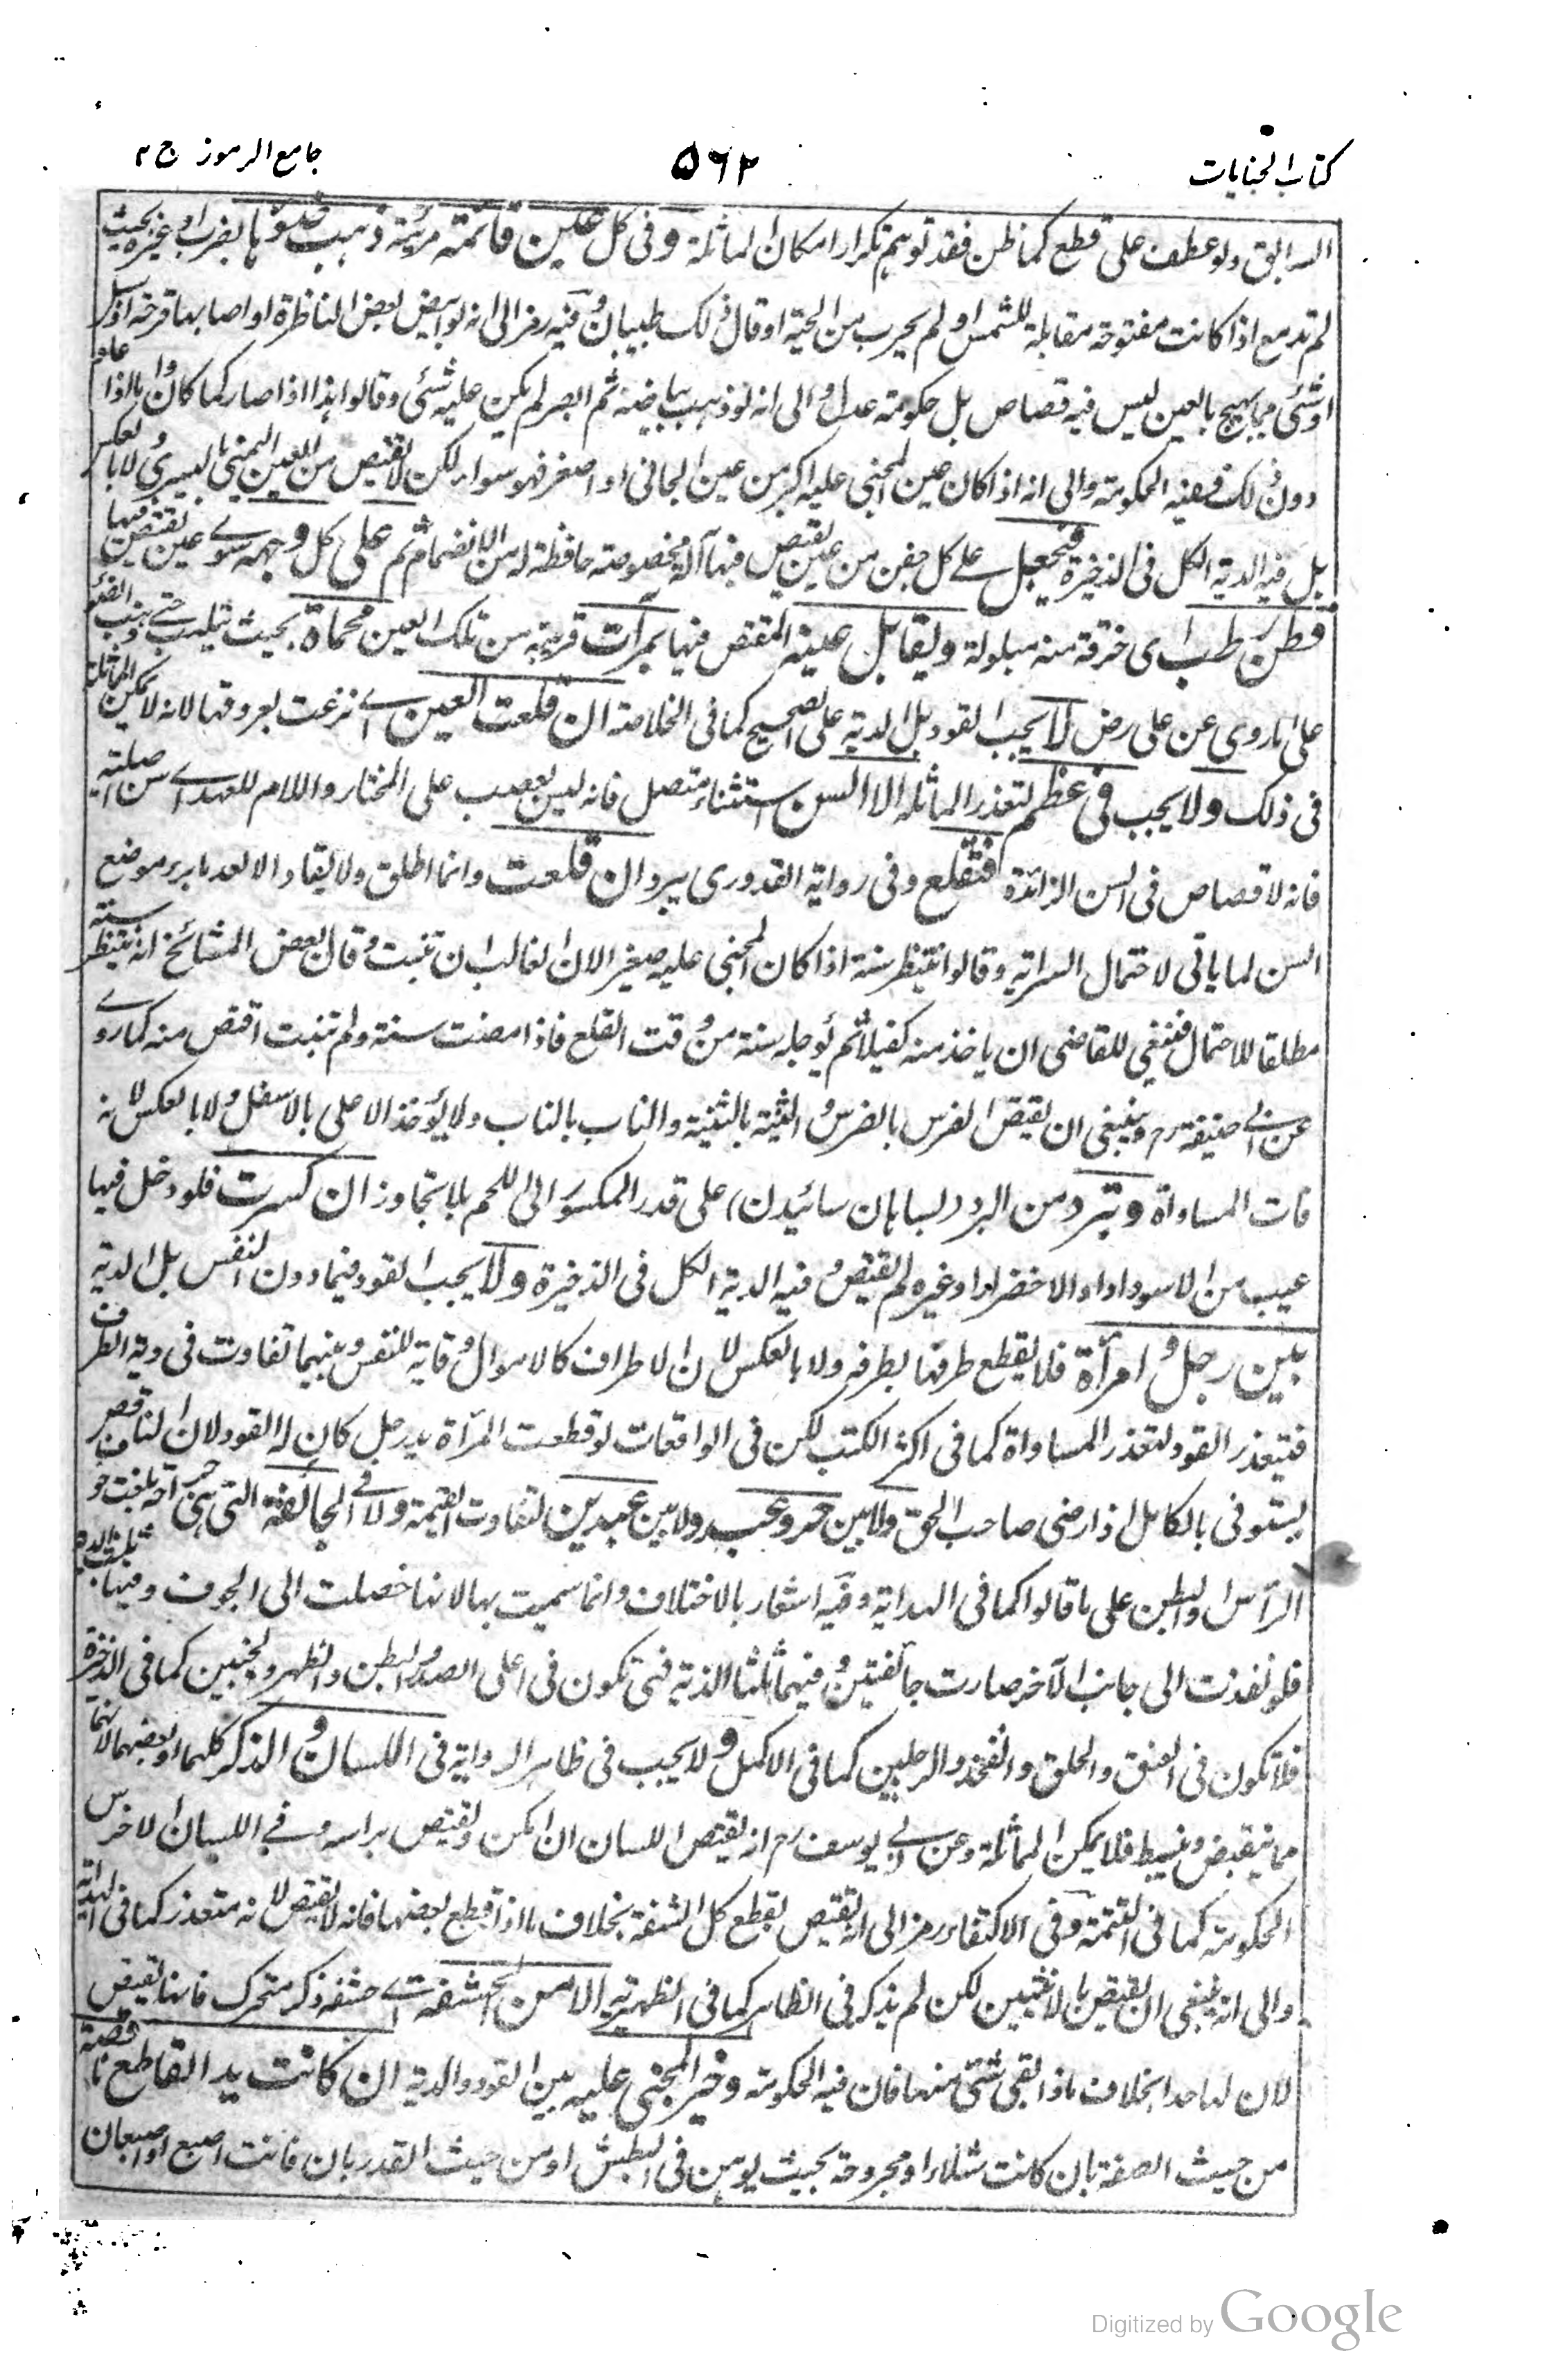 كتاب الجنايات
۵۶۲
جامع الرموز ج ٢
السابق ولو عطف على قطع كما ظن فقد توهم تكرار امكان المماثلة وفى كل عين قائمة مرئية ذهب ضوؤها بالضرب او غيره بحيث
لم تدمع اذا كانت مفتوحة مقابلة للشمس او لم يهرب من الحية او قال ذلك طبيبان وفيه رمز الى انه لو ابيض بعض الناظرة او اصابها قرحة او سبل
او شئ مما يهيج بالعين ليس فيه قصاص بل حكومة عدل والى انه لو ذهب بياضه ثم ابصر لم يكن عليه شئ وقالوا هذا اذا صار كما كان واما اذا عاد
دون ذلك ففيه الحكومة والى انه اذا كان عين المجنى عليه اكبر من عين الجانى او اصغر فهو سواء لكن لا يقتص من العين اليمنى باليسرى ولا بالعكس
بل فيه الدية الكل فى الذخيرة فيجعل على كل جفن من عين يقتص فيها آلة مخصوصة حافظة له من الانضمام ثم على كل وجهه سوى عين يقتص فيها
قطن رطب اى خرقة منه مبلولة ويقابل عينه المقتص فيها بمرآت قريبة من تلك العين محماة بحيث تلهب حتى يذهب الضوء
على ما روى عن على رض لا يجب القود بل الدية على الصحيح كما فى الخلاصة ان قلعت العين اى نزعت بعروقها لانه لا يمكن المماثلة
فى ذلك ولا يجب فى عظم لتعذر المماثلة الا السن استثناء متصل فانه ليس بعصب على المختار واللام للعهد اى سن اصلية
فانه لا قصاص فى السن الزائدة فتقلع وفى رواية القدورى يبرد ان قلعت وانما اطلق ولا يقاد الا بعد ما برء موضع
السن لما ياتى لاحتمال السراية وقالوا ينتظر سنة اذا كان المجنى عليه صغيرا لان الغالب ان تنبت وقال بعض المشائخ انه ينتظر سنة
مطلقا للاحتمال فينبغى للقاضى ان ياخذ منه كفيلا ثم يؤجله سنة من وقت القلع فاذا مضت سنة ولم تنبت اقتص منه كما روى
عن ابى حنيفة رح وينبغى ان يقتص الضرس بالضرس والثنية بالثنية والناب بالناب ولا يؤخذ الاعلى بالاسفل ولا بالعكس لانه
فات المساواة وتبرد من البرد (بسابان سائيدن) على قدر المكسور الى اللحم بلا تجاوز ان كسرت فلو دخل فيها
عيب من الاسوداد او الاخضرار او غيره لم يقتص وفيه الدية الكل فى الذخيرة ولا يجب القود فيما دون النفس بل الدية
بين رجل وامرأة فلا يقطع طرفها بطرفه ولا بالعكس لان الاطراف كالاموال وقاية للنفس وبينهما تفاوت فى دية الطرف
فيتعذر القود لتعذر المساواة كما فى اكثر الكتب لكن فى الواقعات لو قطعت المرأة يد رجل كان له القود لان الناقص
يستوفى بالكامل اذا رضى صاحب الحق ولا بين حر وعبد ولا بين عبدين لتفاوت القيمة ولا فى الجائفة التى هى جراحة بلغت جوف
الرأس او البطن على ما قالوا كما فى الهداية وفيه اشعار بالاختلاف وانما سميت بها لانها حصلت الى الجوف وفيها ثلث الدية
فلو نفذت الى جانب الآخر صارت جائفتين وفيهما ثلثا الدية فهى تكون فى اعلى الصدر والبطن والظهر والجنبين كما فى الذخيرة
فلا تكون فى العنق والحلق والفخذ والرجلين كما فى الاكمل ولا يجب فى ظاهر الرواية فى اللسان والذكر كلهما او بعضهما لانهما
مما ينقبض وينبسط فلا يمكن المماثلة وعن ابى يوسف رح انه يقتص اللسان ان امكن ويقتص براسه وفى اللسان الاخرس
الحكومة كما فى التتمة وفى الاكتفاء رمز الى انه يقتص بقطع كل الشفة بخلاف ما اذا قطع بعضها فانه لا يقتص لانه متعذر كما فى الهداية
والى انه ينبغى ان يقتص بالانثيين لكن لم يذكر فى الظاهر كما فى الظهيرية الا من الحشفة اى حشفة ذكر متحرك فانها يقتص
لان لها حدا بخلاف ما اذا بقى شئ منها فان فيه الحكومة وخير المجنى عليه بين القود والدية ان كانت يد القاطع ناقصة
من حيث الصفة بان كانت شلاء او مجروحة بحيث يوهن فى البطش او من حيث القدر بان فاتت اصبع او اصبعان
Digitized by Google